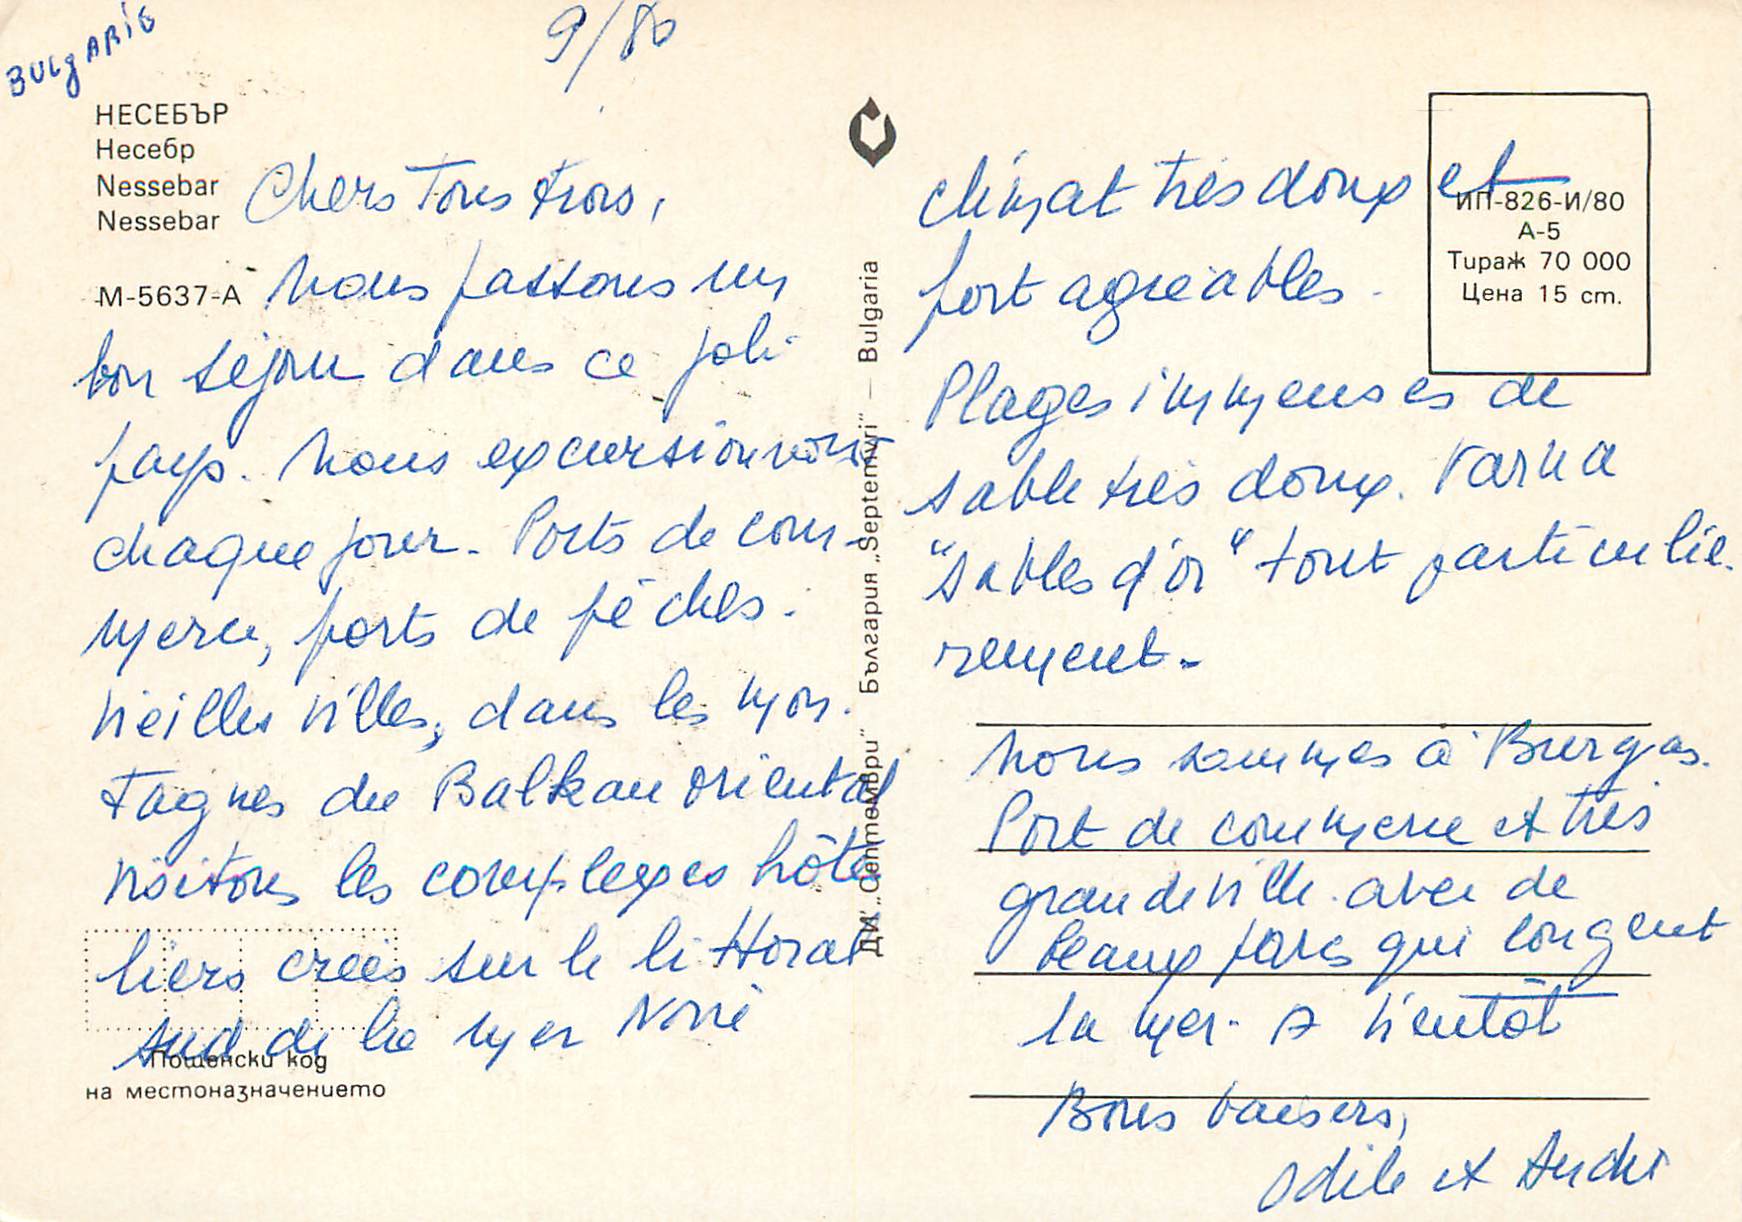 BULgARiE
9/80
НЕСЕБЪР
Несебр
Nessebar
Nessebar
M-5637-A
Chers Tous trois,
Nous passons un
bon séjour dans ce joli
pays. Nous excursionnons
chaque jour. Ports de com-
merce, ports de pêches.
Vieilles villes, dans les mon-
tagnes du Balkan oriental
visitons les complexes hôte
liers créés sur le littoral
sud de la mer Noire
Пощенски код
на местоназначението
ДИ „Септември“ България „Septemvri“ — Bulgaria
ИП-826-И/80
А-5
Тираж 70 000
Цена 15 ст.
climat très doux et
fort agréables.
Plages immenses de
sable très doux. Varna
"sables d'or" tout particuliè-
rement.
Nous sommes à Burgas.
Port de commerce et très
grande ville. avec de
beaux parcs qui longent
la mer. A bientôt
Bons baisers,
Odile et André